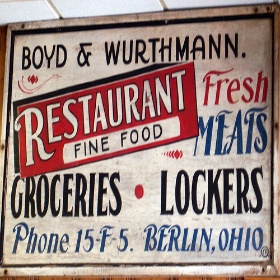 BOYD & WURTHMANN.
RESTAURANT
FINE FOOD
Fresh
MEATS
GROCERIES • LOCKERS
Phone 15-F-5. BERLIN, OHIO